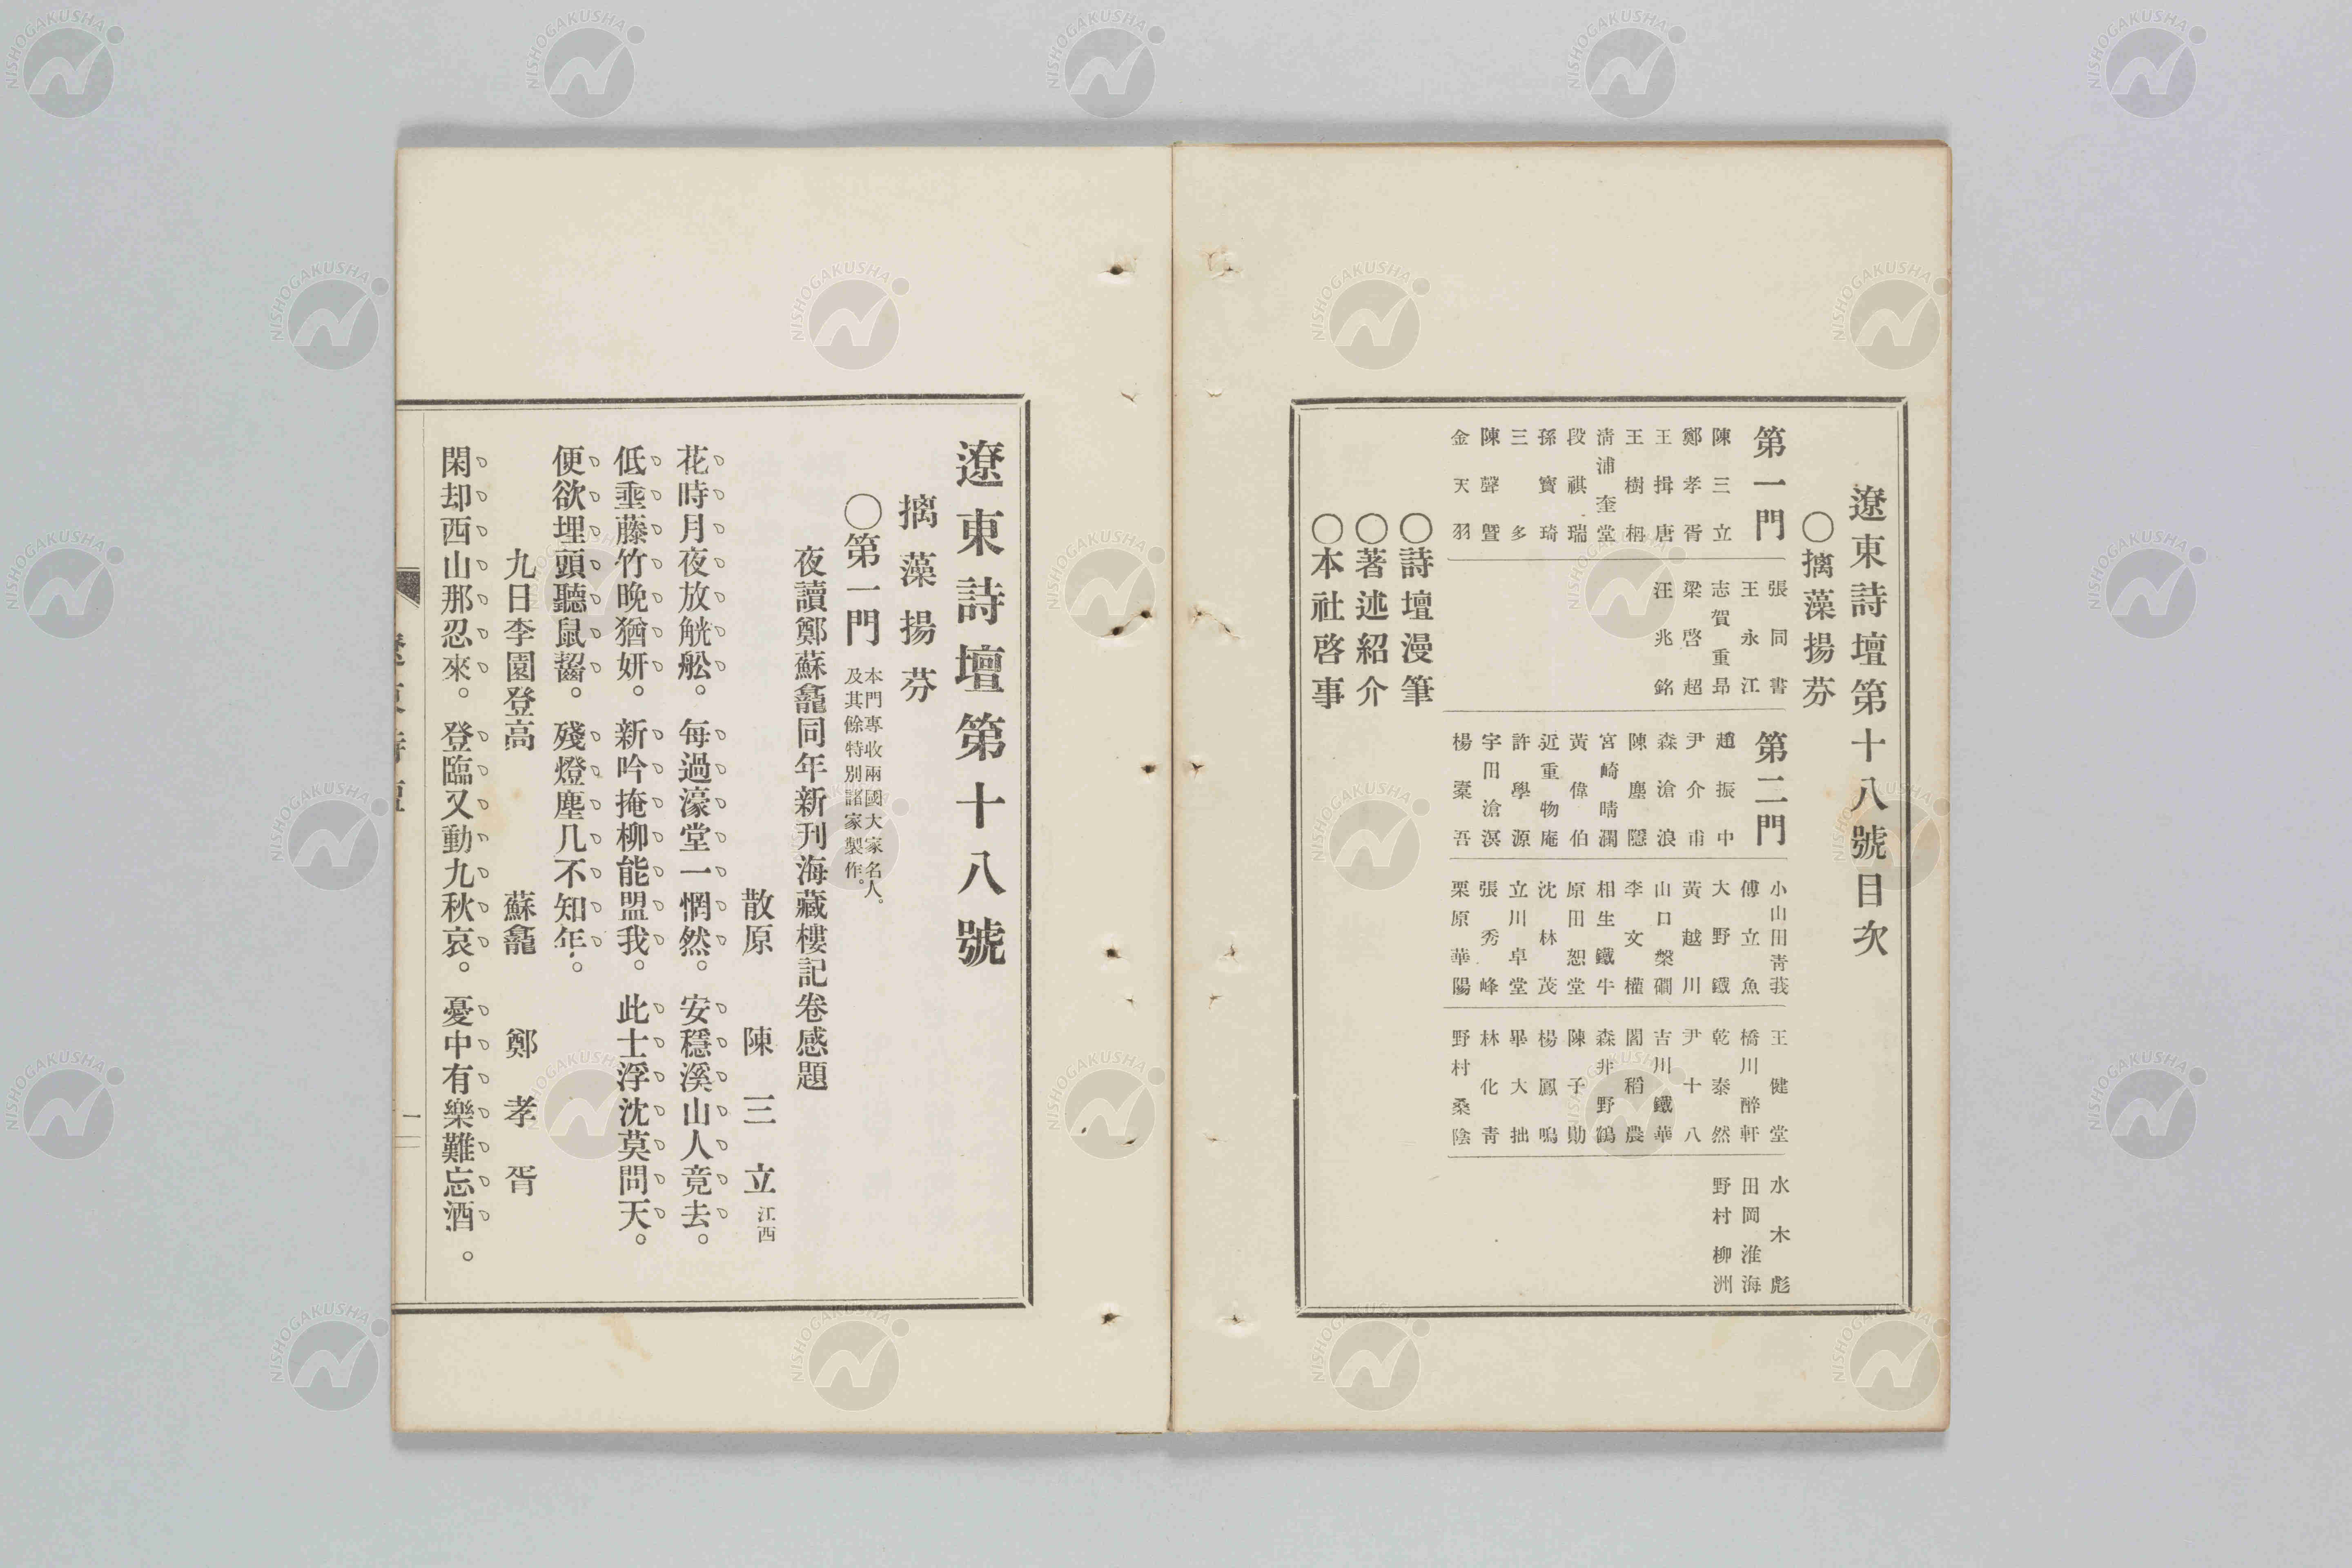 遼東詩壇第十八號目次
○摛藻揚芬
第一門
陳三立
鄭孝胥
王揖唐
王樹枏
淸浦奎堂
段祺瑞
孫寶琦
三多
陳聲曁
金天羽
張同書
王永江
志賀重昻
梁啓超
汪兆銘
第二門
趙振中
尹介甫
森滄浪
陳塵隱
宮崎晴瀾
黃偉伯
近重物庵
許學源
宇田滄溟
楊槖吾
小山田靑莪
傅立魚
大野鐵
黃越川
山口槃磵
李文權
相生鐵牛
原田恕堂
沈林茂
立川卓堂
張秀峰
栗原華陽
王健堂
橋川醉軒
乾泰然
尹十八
吉川鐵華
閻稻農
森井野鶴
陳子勛
楊鳳鳴
畢大拙
林化靑
野村桑陰
水木彪
田岡淮海
野村柳洲
○詩壇漫筆
○著述紹介
○本社啓事
遼東詩壇第十八號
摛藻揚芬
○第一門
本門專收兩國大家名人。
及其餘特別諸家製作。
夜讀鄭蘇龕同年新刊海藏樓記卷感題
散原 陳三立 江西
花時月夜放觥舩。每過濠堂一惘然。安穩溪山人竟去。
低垂藤竹晚猶妍。新吟掩柳能盟我。此士浮沈莫問天。
便欲埋頭聽鼠齧。殘燈塵几不知年。
九日李園登高 蘇龕 鄭孝胥
閑却西山那忍來。登臨又動九秋哀。憂中有樂難忘酒。
一
NISHOGAKUSHA